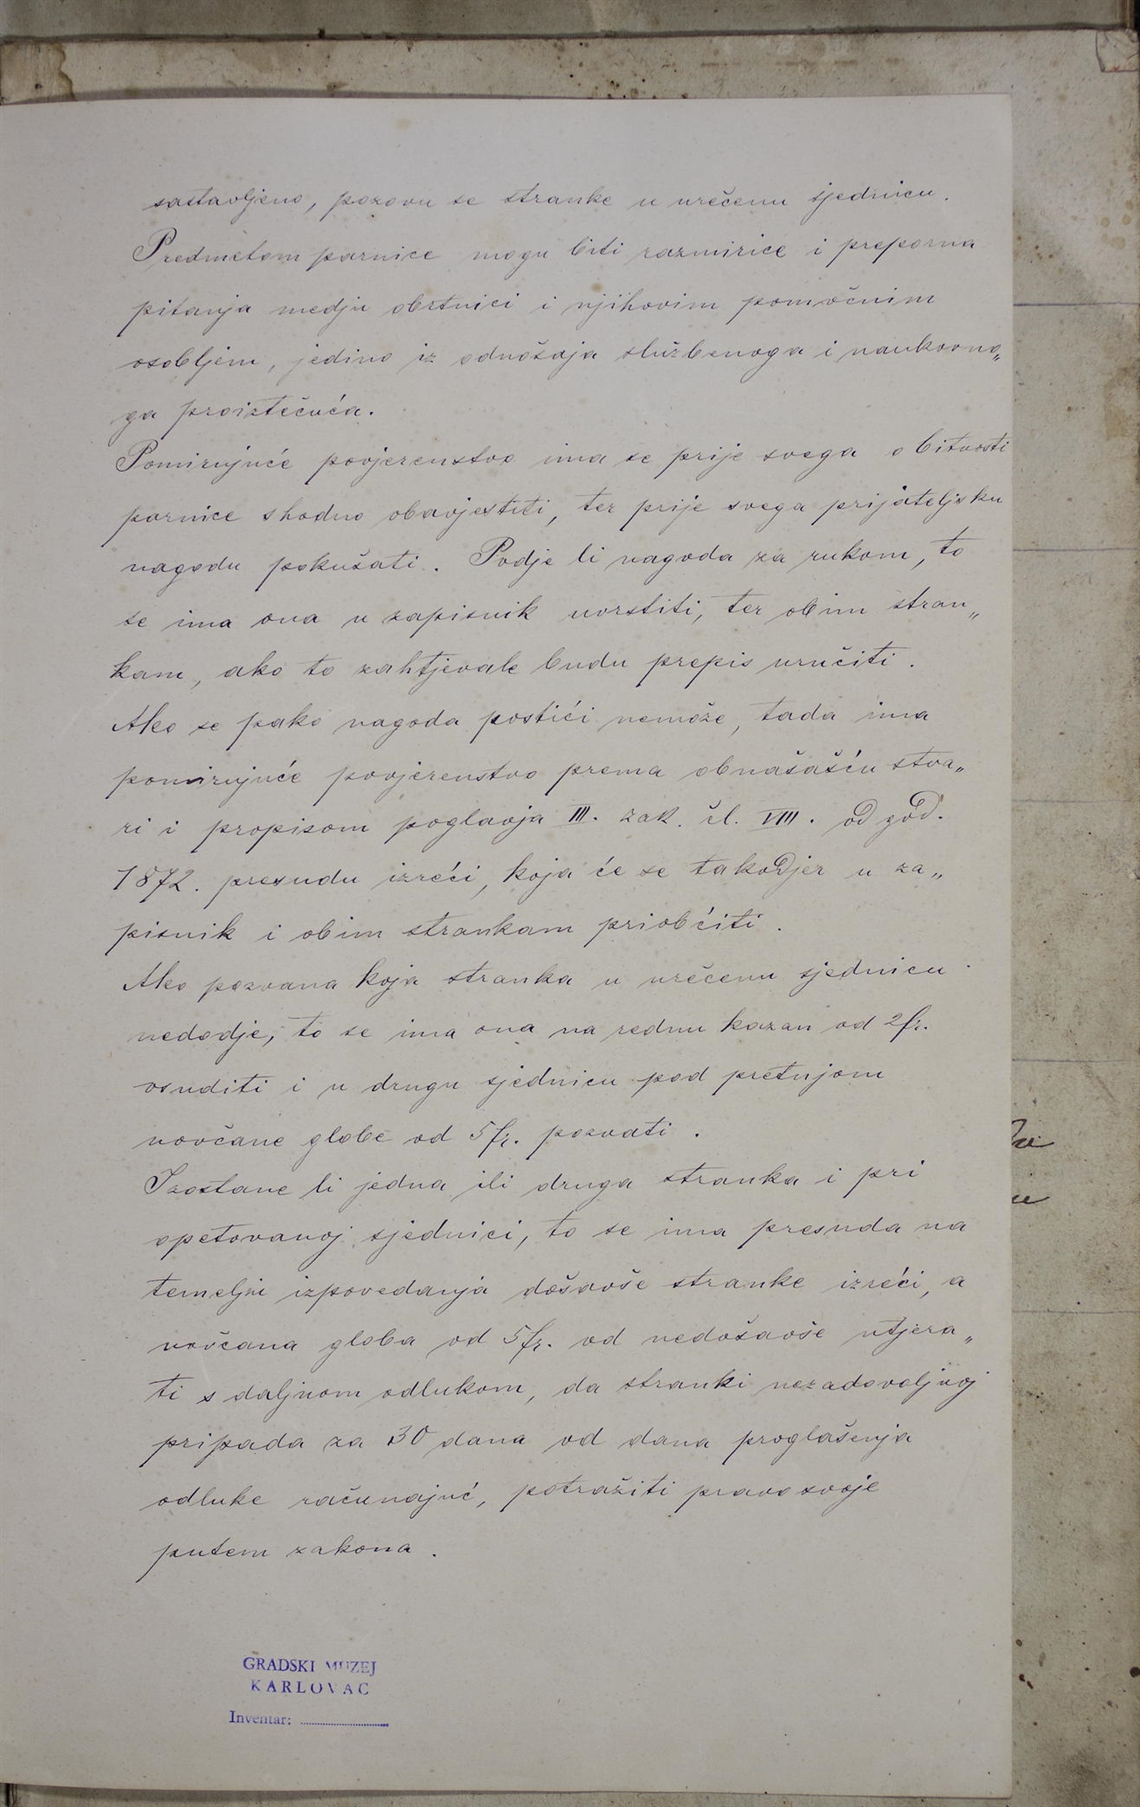 sastavljeno, pozovu se stranke u urečenu sjednicu.
Predmetom parnice mogu biti razmirice i preporna
pitanja medju obrtnici i njihovim pomoćnim
osobljem, jedino iz odnošaja službenoga i naukovno„
ga proiztečuća.
Pomirujuće povjerenstvo ima se prije svega o bitnosti
parnice shodno obavjestiti, ter prije svega prijateljsku
nagodu pokušati. Podje li nagoda za rukom, to
se ima ona u zapisnik uvrstiti, ter obim stran„
kam, ako to zahtjevale budu prepis uručiti.
Ako se pako nagoda postići nemože, tada ima
pomirujuće povjerenstvo prema obnašašću stva„
ri i propisom poglavja III. zak. čl. VIII. od god.
1872. presudu izreći, koja će se takodjer u za„
pisnik i obim strankam priobćiti.
Ako pozvana koja stranka u urečenu sjednicu
nedodje, to se ima ona na rednu kazan od 2 fr.
osuditi i u drugu sjednicu pod pretnjom
novčane globe od 5 fr. pozvati.
Izostane li jedna ili druga stranka i pri
opetovanoj sjednici, to se ima presuda na
temelju izpovedanja došavše stranke izreći, a
novčana globa od 5 fr. od nedošavše utjera„
ti s daljnom odlukom, da stranki nezadovoljnoj
pripada za 30 dana od dana proglašenja
odluke računajuć, potražiti pravo svoje
putem zakona.
GRADSKI MUZEJ
KARLOVAC
Inventar: